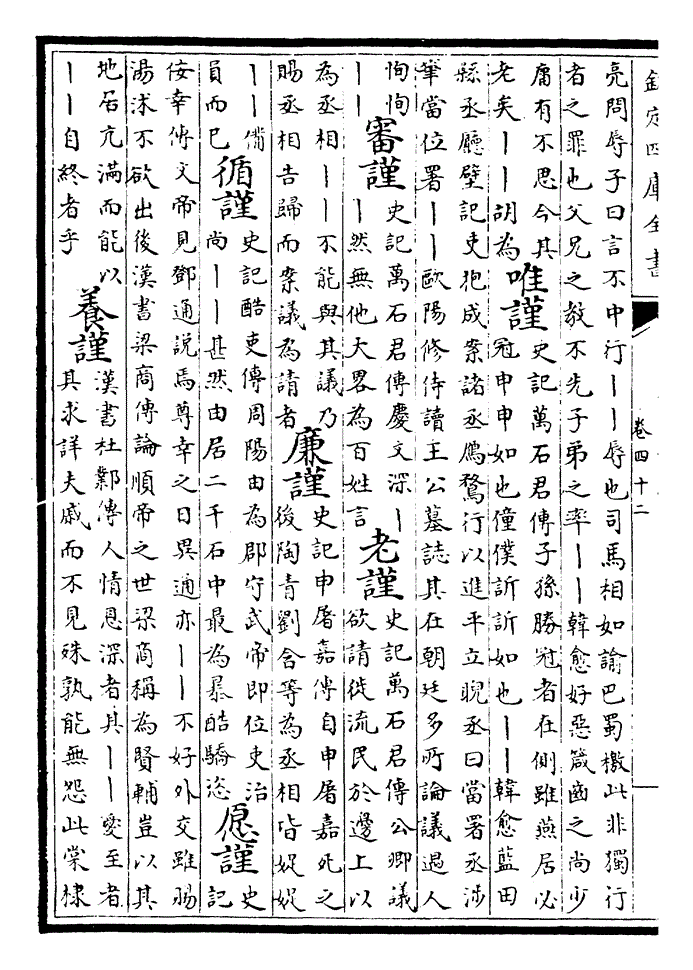 欽定四庫全書
卷四十二
亮問辱子曰言不中行丨丨辱也司馬相如諭巴蜀檄此非獨行
者之罪也父兄之教不先子弟之率丨丨韓愈好惡箴齒之尚少
庸有不思今其
老矣丨丨胡為
唯謹
史記萬石君傳子孫勝冠者在側雖燕居必
冠申申如也僮僕訢訢如也丨丨韓愈藍田
縣丞廳壁記吏抱成案諸丞鴈鶩行以進平立睨丞曰當署丞涉
筆當位署丨丨歐陽修侍讀王公墓誌其在朝廷多所論議過人
恂恂
丨丨
審謹
史記萬石君傳慶文深丨
丨然無他大畧為百姓言
老謹
史記萬石君傳公卿議
欲請徙流民於邊上以
為丞相丨丨不能與其議乃
賜丞相告歸而案議為請者
廉謹
史記申屠嘉傳自申屠嘉死之
後陶青劉舍等為丞相皆娖娖
丨丨備
員而已
循謹
史記酷吏傳周陽由為郡守武帝即位吏治
尚丨丨甚然由居二千石中最為暴酷驕恣
愿謹
史
記
佞幸傳文帝見鄧通說焉尊幸之日異通亦丨丨不好外交雖賜
湯沐不欲出後漢書梁商傳論順帝之世梁商稱為賢輔豈以其
地居亢滿而能以
丨丨自終者乎
養謹
漢書杜鄴傳人情恩深者其丨丨愛至者
其求詳夫戚而不見殊孰能無怨此棠棣